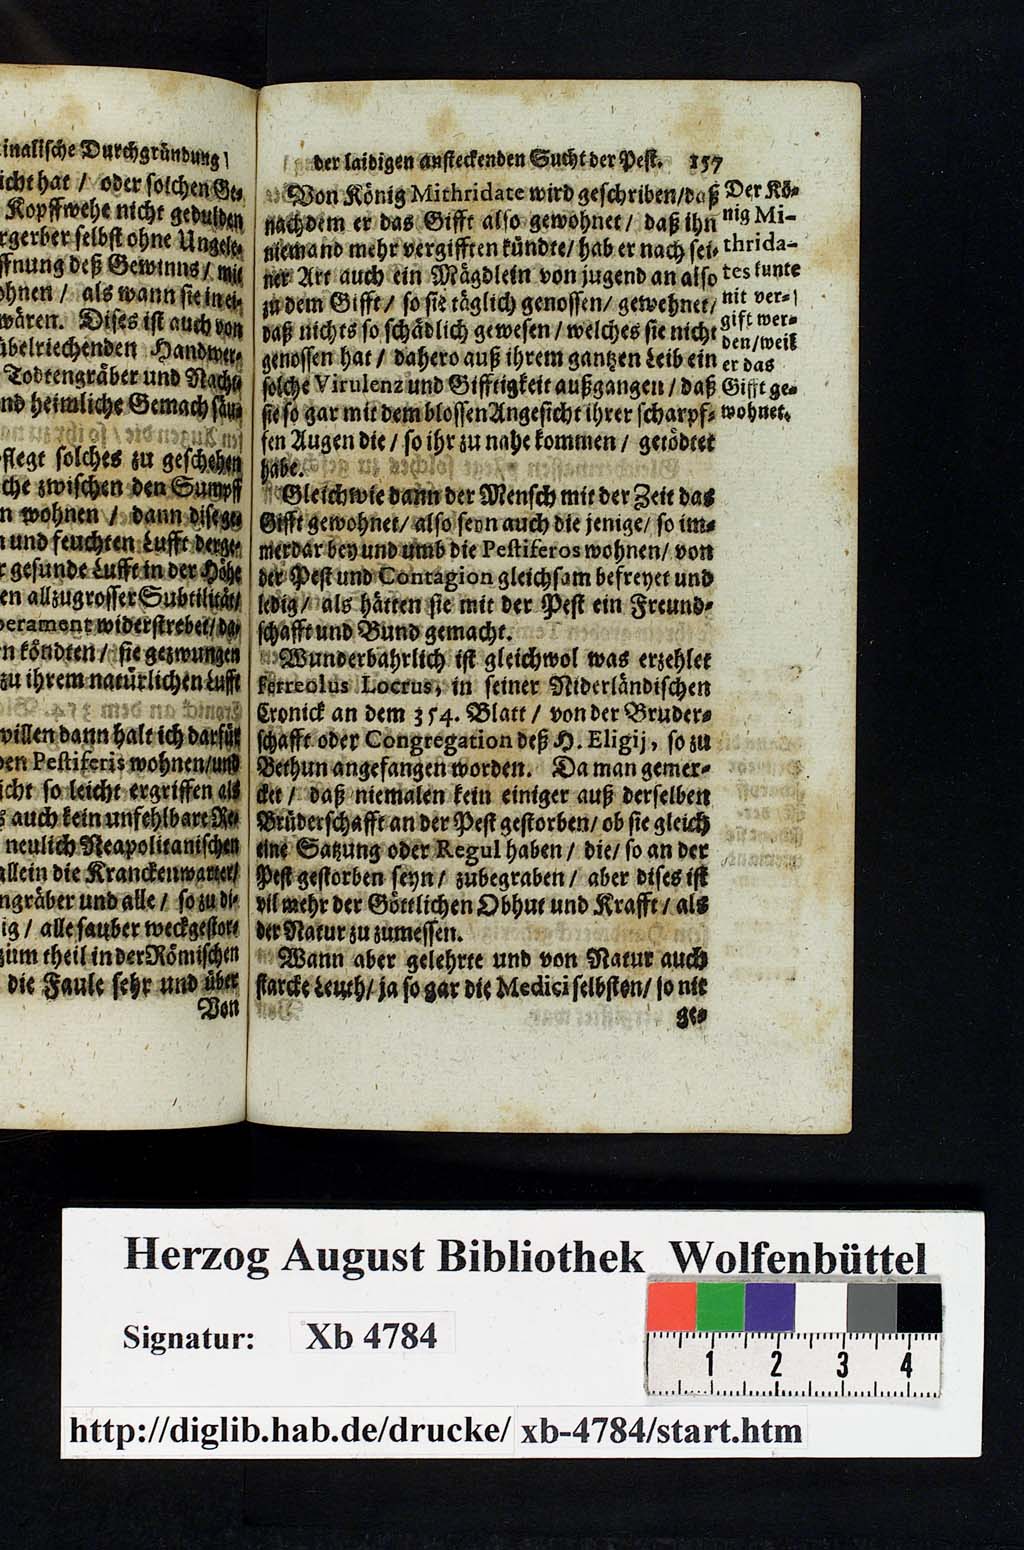 inalische Durchgründung/
icht hat / oder solchen Ge-
Kopffwehe nicht gedulden
rgerber selbst ohne Ungele-
ffnung deß Gewinns / mit
ohnen / als wann sie in ei-
wären. Dises ist auch von
übelriechenden Handwer-
Todtengräber und Nach-
nd heimliche Gemach säu-
flegt solches zu geschehen
che zwischen den Sumpff
n wohnen / dann dise ge-
n und feuchten Lufft derge-
r gesunde Lufft in der Höhe
en allzugrosser Subtilität/
perament widerstrebet/ da-
n köndten / sie gezwungen
zu ihrem natürlichen Lufft
willen dann halt ich darfür
den Pestiferis wohnen/und
icht so leicht ergriffen als
s auch kein unfehlbare Re-
neulich Neapolitanischen
allein die Kranckenwarter/
ngräber und alle / so zu di-
ig / alle sauber weckgestor-
zum theil in der Römischen
die Faule sehr und über
Von
der laidigen ansteckenden Sucht der Pest. 157
Von König Mithridate wird geschriben/daß
nachdem er das Gifft also gewohnet / daß ihn
niemand mehr vergifften kündte/ hab er nach sei-
ner Art auch ein Mägdlein von jugend an also
zu dem Gifft / so sie täglich genossen/ gewehnet/
daß nichts so schädlich gewesen / welches sie nicht
genossen hat / dahero auß ihrem gantzen Leib ein
solche Virulenz und Gifftigkeit außgangen / daß
sie so gar mit dem blossen Angesicht ihrer scharpf-
fen Augen die / so ihr zu nahe kommen / getödtet
habe.
Der Kö-
nig Mi-
thrida-
tes kunte
nit ver-
gift wer-
den/weil
er das
Gifft ge-
wohnet.
Gleichwie dann der Mensch mit der Zeit das
Gifft gewohnet/ also seyn auch die jenige/ so im-
merdar bey und umb die Pestiferos wohnen/ von
der Pest und Contagion gleichsam befreyet und
ledig / als hätten sie mit der Pest ein Freund-
schafft und Bund gemacht.
Wunderbahrlich ist gleichwol was erzehlet
Ferreolus Locrus, in seiner Niderländischen
Cronick an dem 354. Blatt / von der Bruder-
schafft oder Congregation deß H. Eligij, so zu
Bethun angefangen worden. Da man gemer-
cket / daß niemalen kein einiger auß derselben
Brüderschafft an der Pest gestorben/ ob sie gleich
eine Satzung oder Regul haben / die/ so an der
Pest gestorben seyn/ zubegraben / aber dises ist
vil mehr der Göttlichen Obhut und Krafft / als
der Natur zu zumessen.
Wann aber gelehrte und von Natur auch
starcke Leuth/ ja so gar die Medici selbsten/ so nie
ge-
Herzog August Bibliothek Wolfenbüttel
Signatur: Xb 4784
1 2 3 4
http://diglib.hab.de/drucke/ xb-4784/start.htm